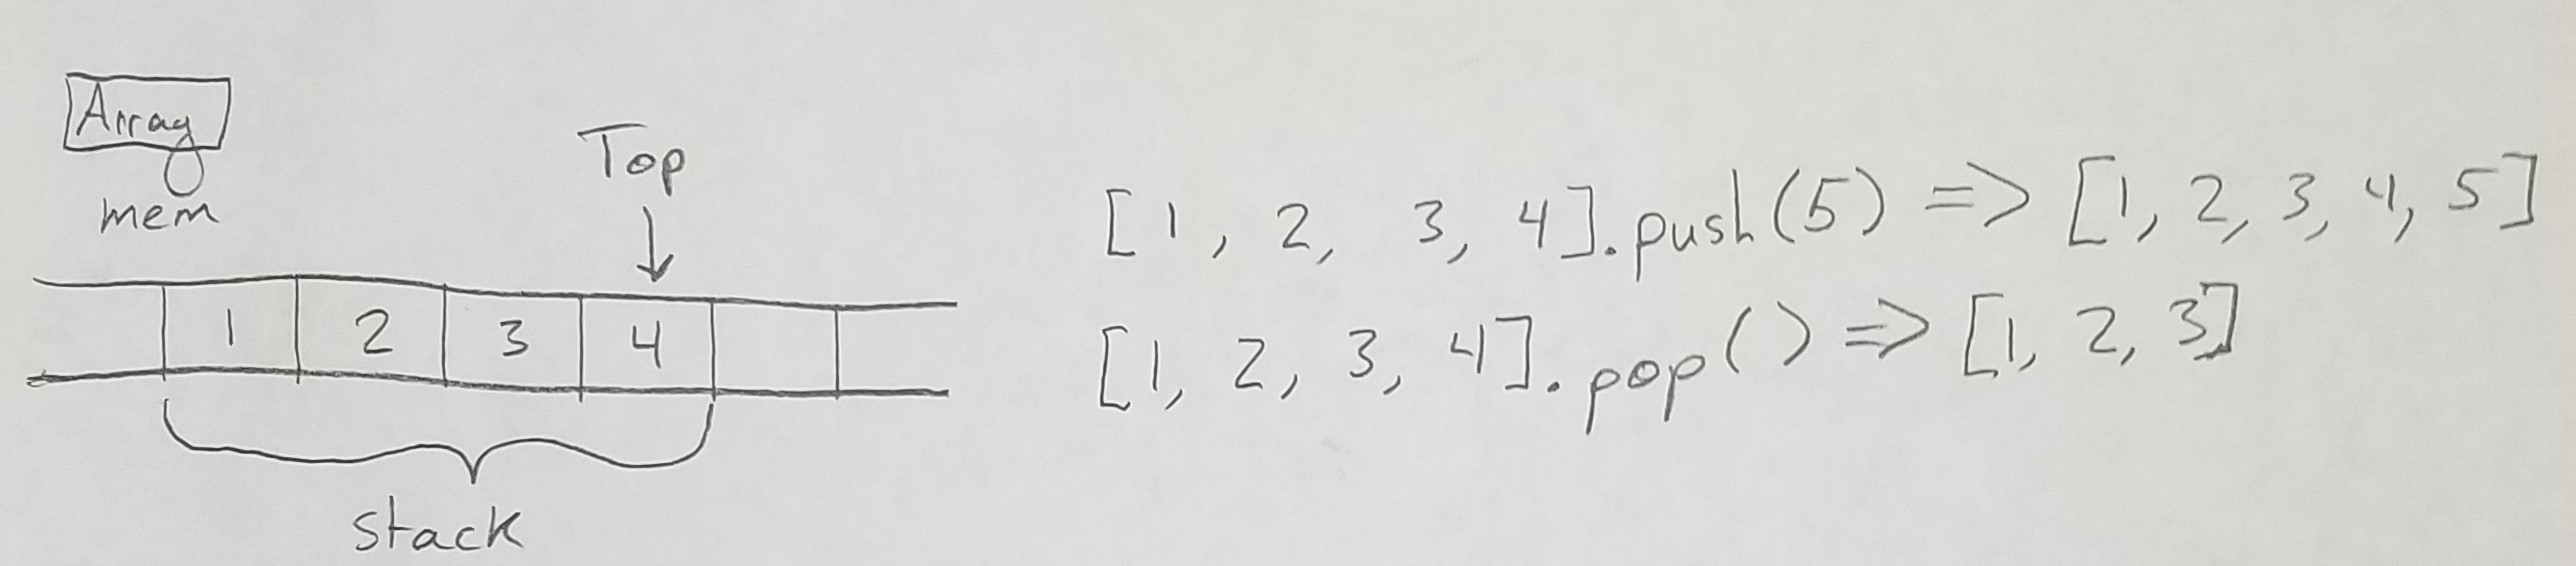 Array
mem
Top
1 2 3 4
stack
[1, 2, 3, 4].push(5) => [1, 2, 3, 4, 5]
[1, 2, 3, 4].pop() => [1, 2, 3]